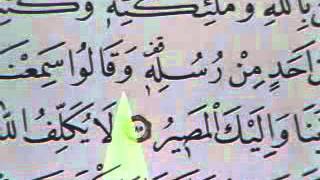 بِاللَّهِ وَمَلَٰٓئِكَتِهِۦ وَكُتُ
أَحَدٍ مِّن رُّسُلِهِۦ ۚ وَقَالُوا۟ سَمِعْنَا
نَا وَإِلَيْكَ الْمَصِيرُ لَا يُكَلِّفُ اللَّهُ